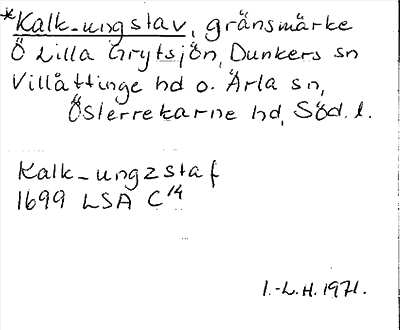 *Kalk-ungstav, gränsmärke
Ö Lilla Grytsjön, Dunkers sn
Villåttinge hd o. Ärla sn,
Österrekarne hd, Söd. l.
Kalk-ungzstaf
1699 LSA C¹⁴
I.-L.H. 1971.